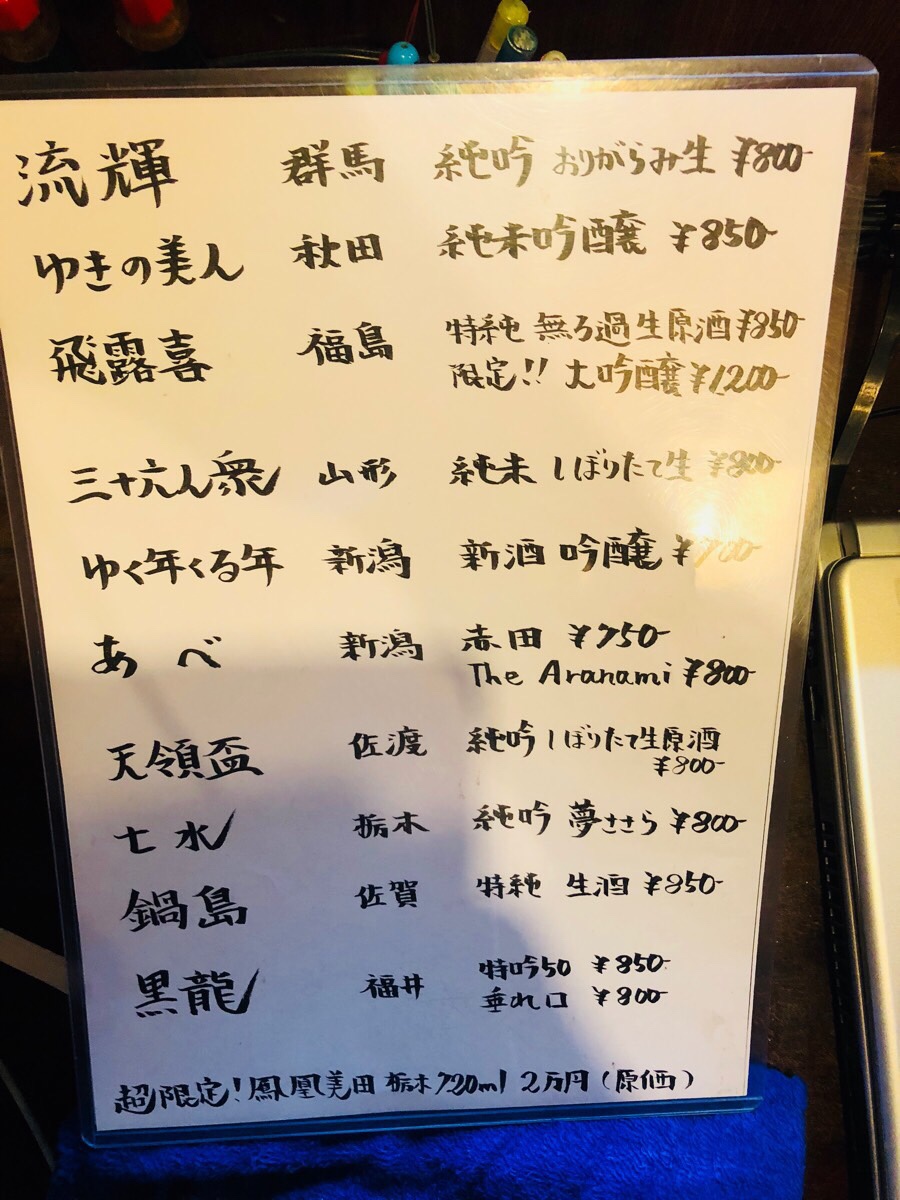 流輝 群馬 純吟 おりがらみ生 ¥800-
ゆきの美人 秋田 純米吟醸 ¥850-
飛露喜 福島 特純 無ろ過生原酒 ¥850-
限定!! 大吟醸 ¥1200-
三十六人衆 山形 純米 しぼりたて生 ¥800-
ゆく年くる年 新潟 新酒 吟醸 ¥700-
あべ 新潟 赤田 ¥750-
The Aranami ¥800-
天領盃 佐渡 純吟 しぼりたて生原酒
¥800-
七水 栃木 純吟 夢ささら ¥800-
鍋島 佐賀 特純 生酒 ¥850-
黒龍 福井 特吟50 ¥850-
垂れ口 ¥800-
超限定! 鳳凰美田 栃木 720ml 2万円 (原価)